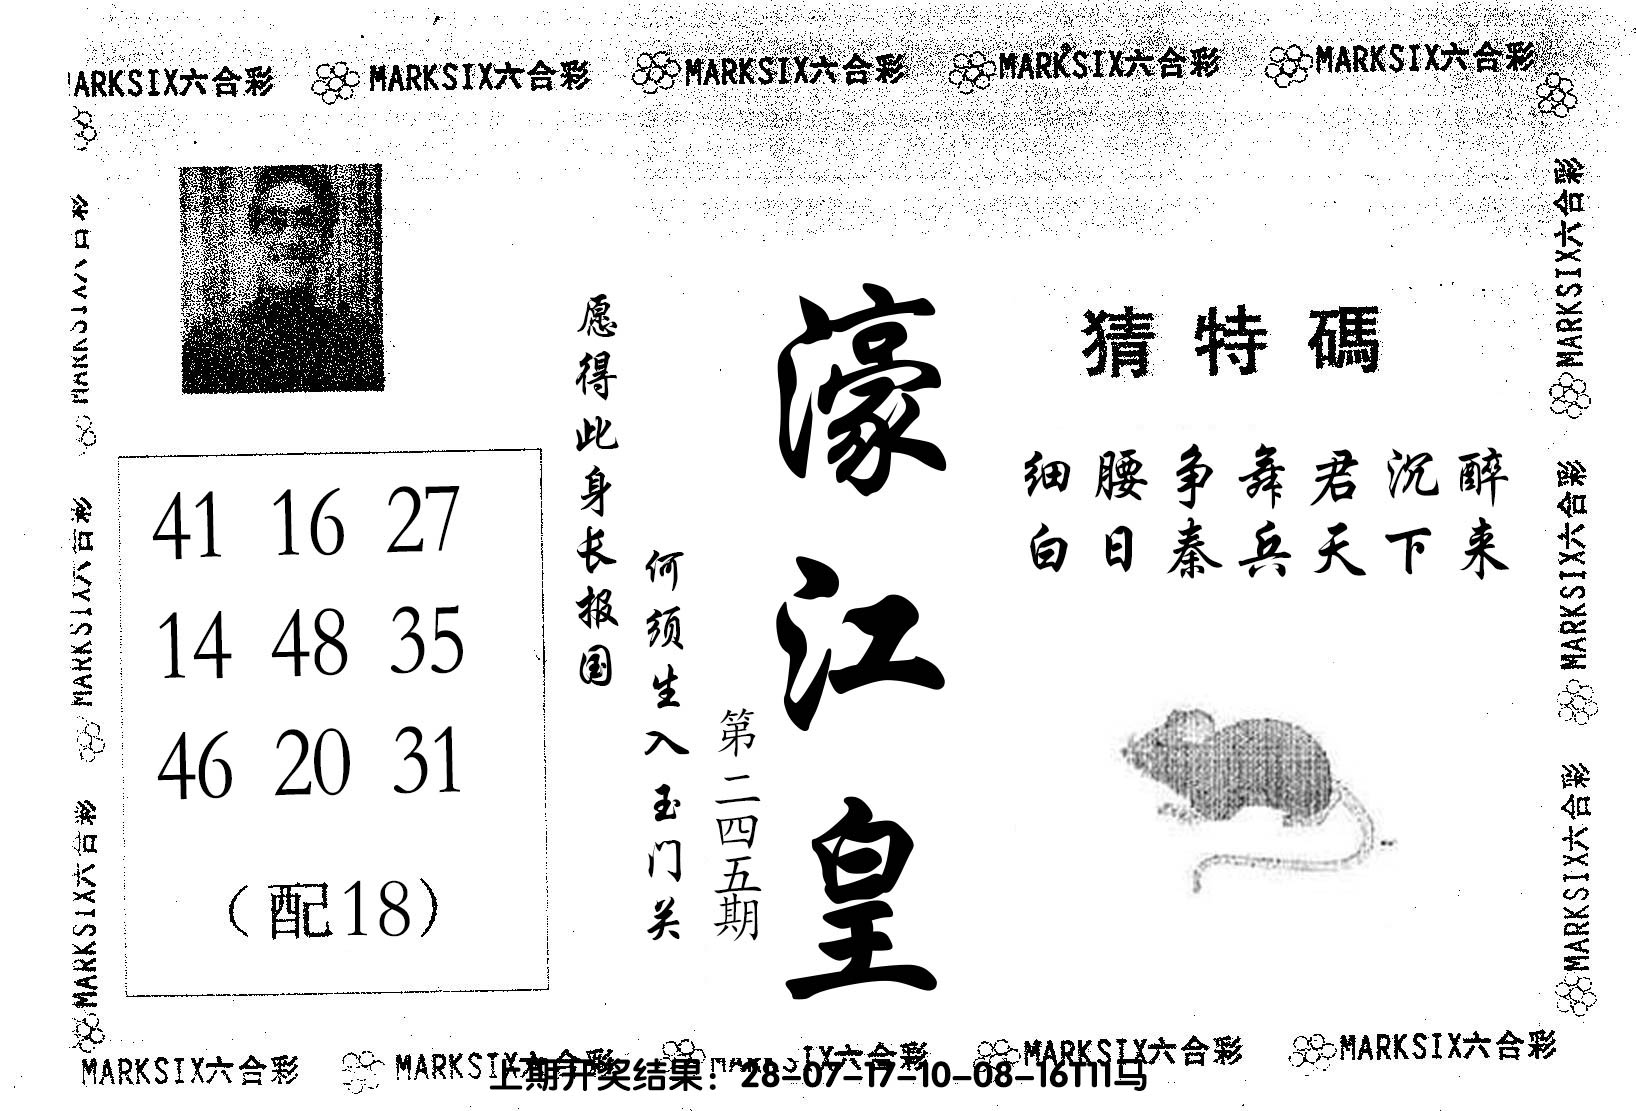 MARKSIX六合彩 MARKSIX六合彩 MARKSIX六合彩 MARKSIX六合彩 MARKSIX六合彩
猜特碼
细腰争舞君沉醉
白日秦兵天下来
濠江皇
第二四五期
何须生入玉门关
愿得此身长报国
41 16 27
14 48 35
46 20 31
（配18）
MARKSIX六合彩 MARKSIX六合彩 MARKSIX六合彩
MARKSIX六合彩 MARKSIX六合彩 MARKSIX六合彩
MARKSIX六合彩 MARKSIX六合彩 MARKSIX六合彩 MARKSIX六合彩 MARKSIX六合彩
上期开奖结果：28-07-17-10-08-16T11马